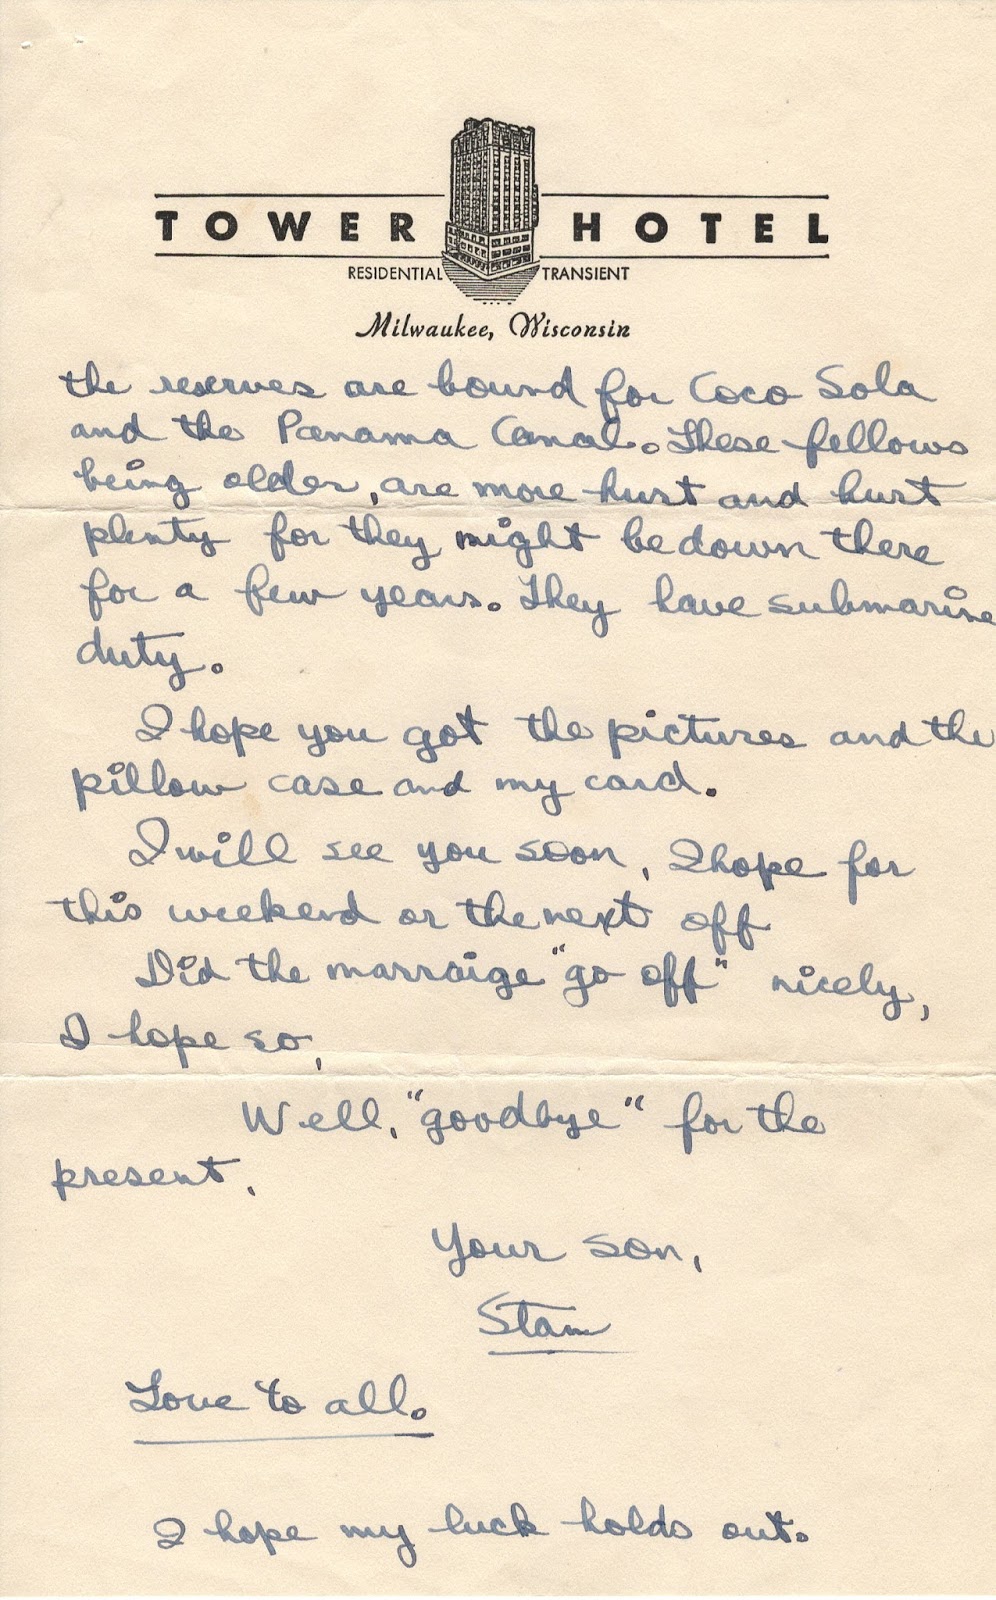 TOWER HOTEL
RESIDENTIAL TRANSIENT
Milwaukee, Wisconsin
the reserves are bound for Coco Sola
and the Panama Canal. These fellows
being older, are more hurt and hurt
plenty for they might be down there
for a few years. They have submarine
duty.
I hope you got the pictures and the
pillow case and my card.
I will see you soon, I hope for
this weekend or the next off
Did the marraige "go off" nicely,
I hope so,
Well, "goodbye" for the
present,
Your son,
Stan
Love to all.
I hope my luck holds out.